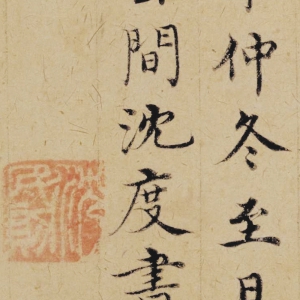 仲冬至日
間沈度書